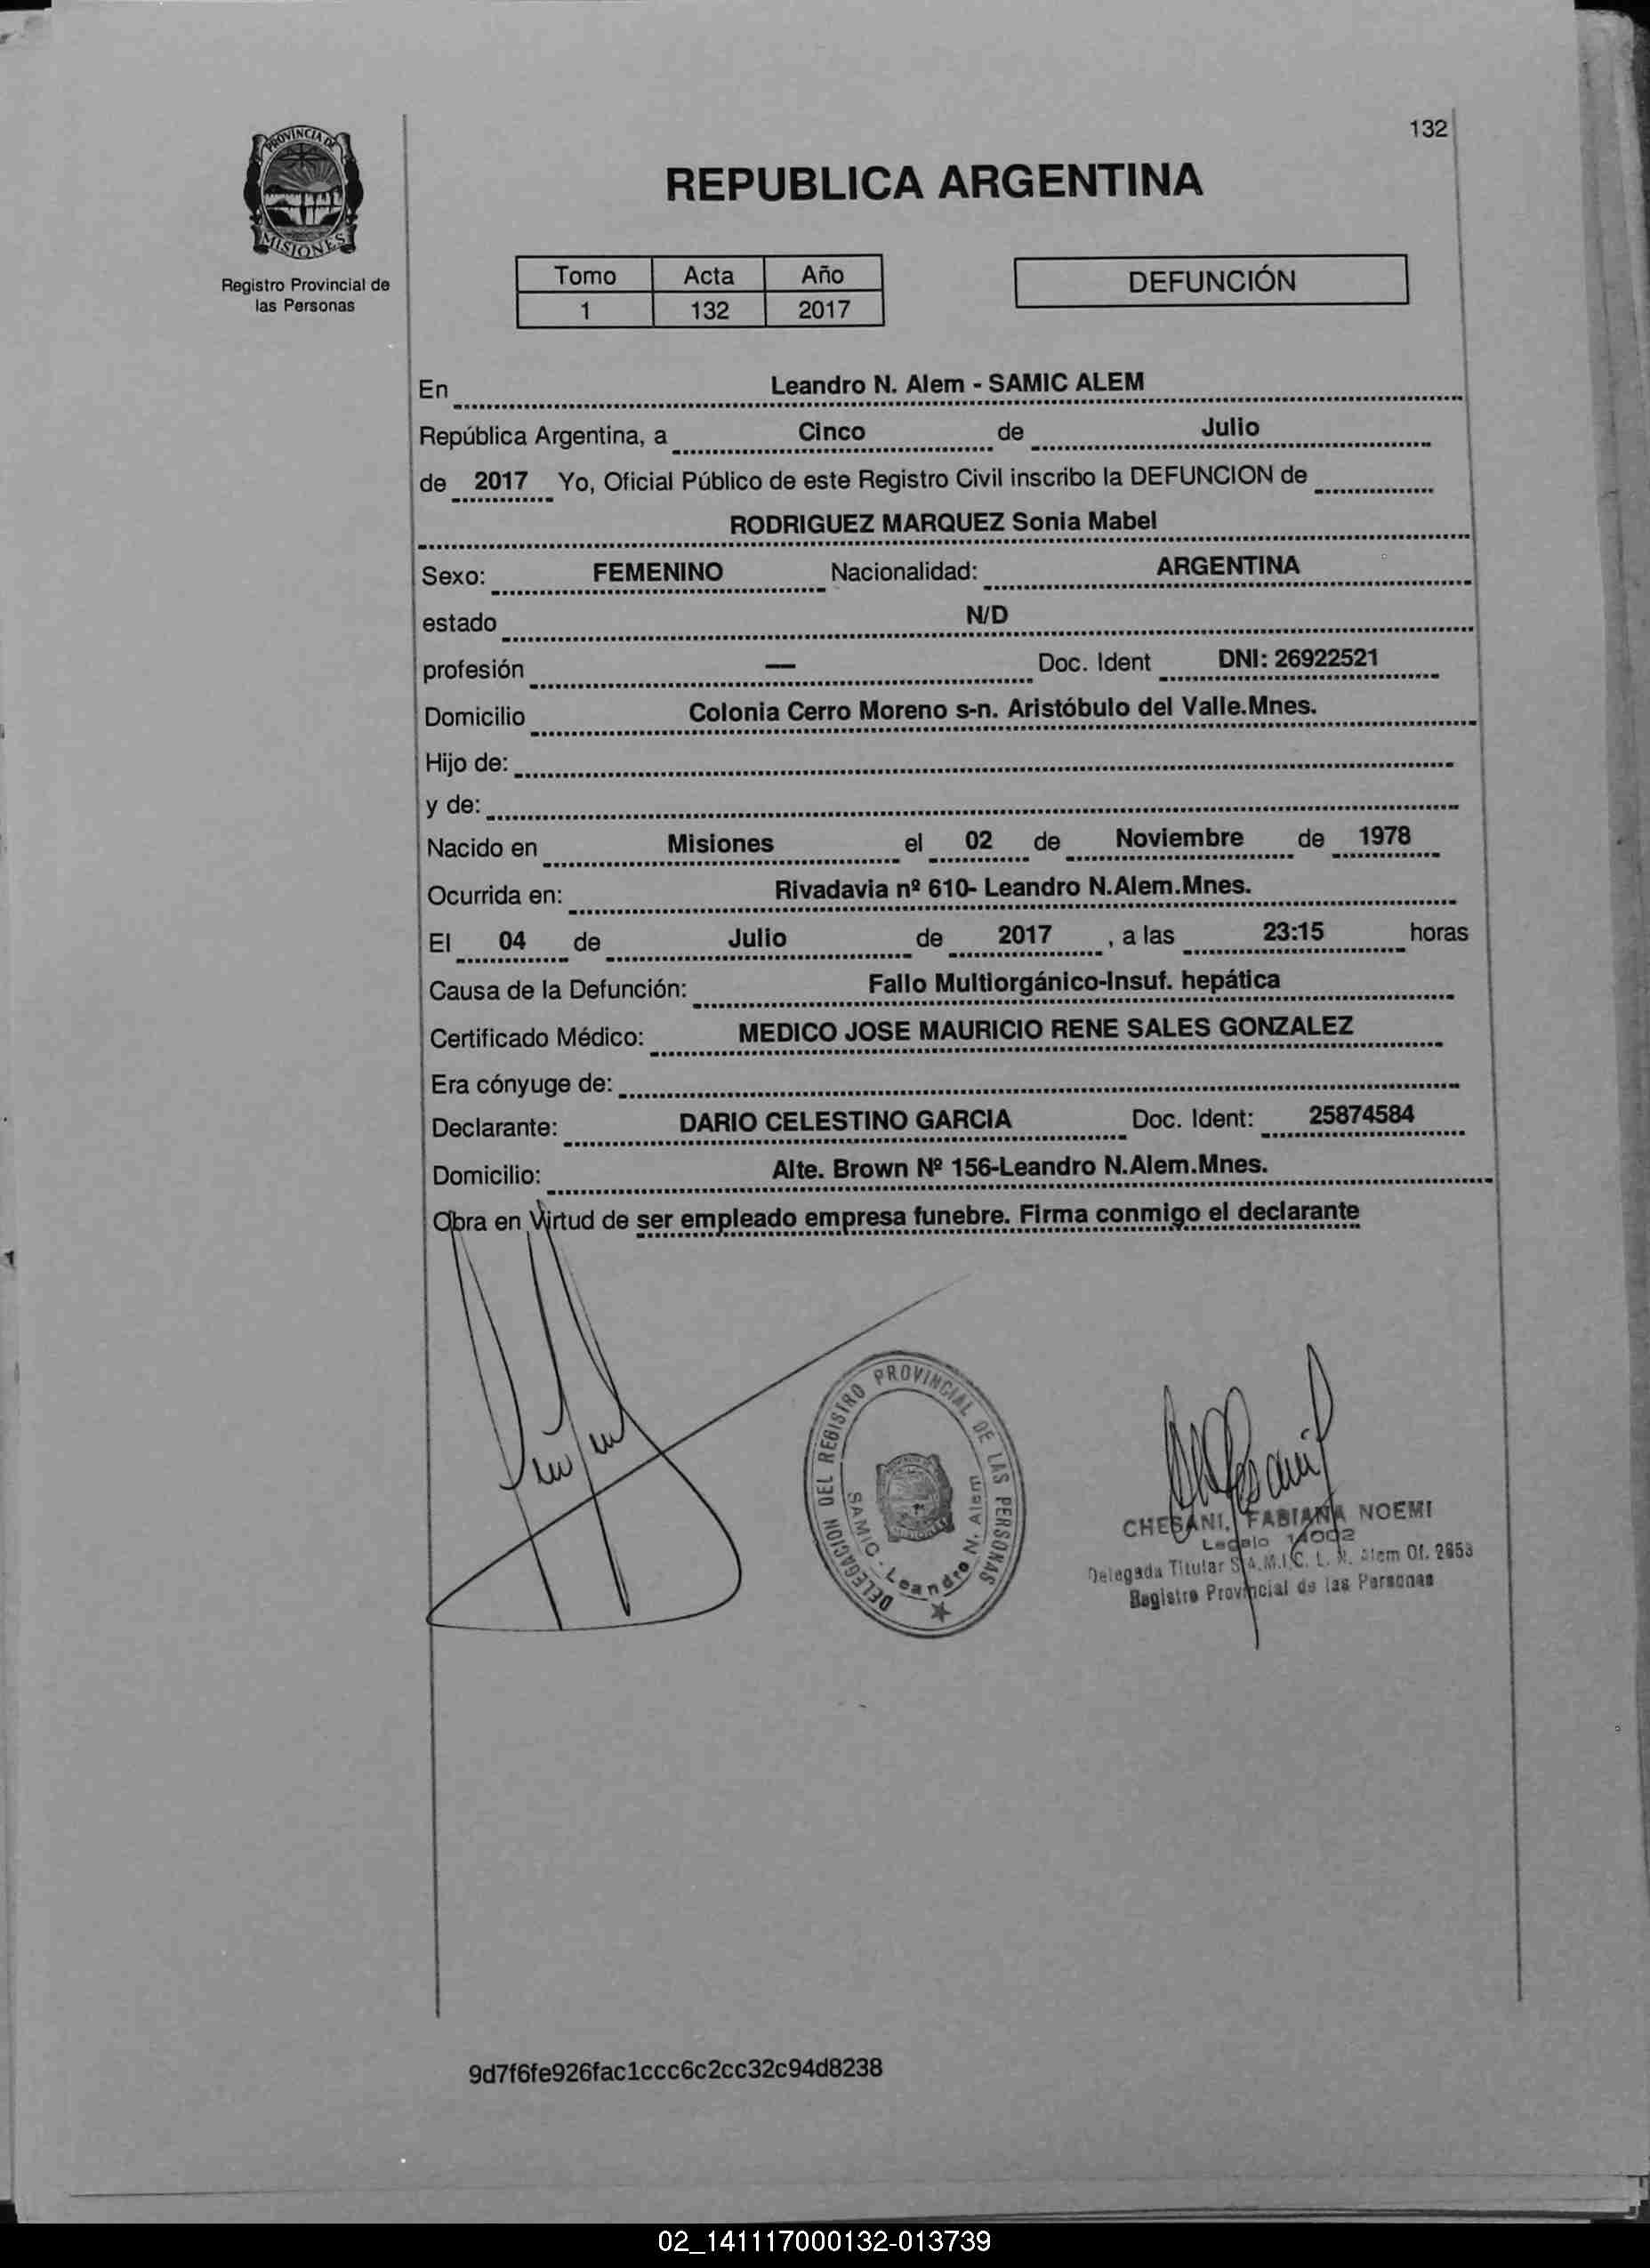 132
PROVINCIA DE
MISIONES
Registro Provincial de
las Personas
REPUBLICA ARGENTINA
Tomo Acta Año
1 132 2017
DEFUNCIÓN
En Leandro N. Alem - SAMIC ALEM
República Argentina, a Cinco de Julio
de 2017 Yo, Oficial Público de este Registro Civil inscribo la DEFUNCION de
RODRIGUEZ MARQUEZ Sonia Mabel
Sexo: FEMENINO Nacionalidad: ARGENTINA
estado N/D
profesión — Doc. Ident DNI: 26922521
Domicilio Colonia Cerro Moreno s-n. Aristóbulo del Valle.Mnes.
Hijo de:
y de:
Nacido en Misiones el 02 de Noviembre de 1978
Ocurrida en: Rivadavia nº 610- Leandro N.Alem.Mnes.
El 04 de Julio de 2017 , a las 23:15 horas
Causa de la Defunción: Fallo Multiorgánico-Insuf. hepática
Certificado Médico: MEDICO JOSE MAURICIO RENE SALES GONZALEZ
Era cónyuge de:
Declarante: DARIO CELESTINO GARCIA Doc. Ident: 25874584
Domicilio: Alte. Brown Nº 156-Leandro N.Alem.Mnes.
Obra en Virtud de ser empleado empresa funebre. Firma conmigo el declarante
DELEGACION DEL REGISTRO PROVINCIAL DE LAS PERSONAS
SAMIC - Leandro N. Alem
CHESANI, FABIANA NOEMI
Legajo 14002
Delegada Titular S.A.M.I.C. L. N. Alem Of. 2653
Registro Provincial de las Personas
9d7f6fe926fac1ccc6c2cc32c94d8238
02_141117000132-013739